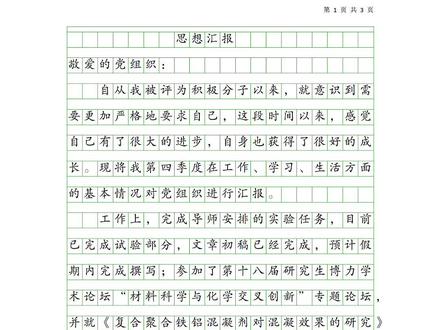 第 1 页 共 3 页
思想汇报
敬爱的党组织：
自从我被评为积极分子以来，就意识到需
要更加严格地要求自己，这段时间以来，感觉
自己有了很大的进步，自身也获得了很好的成
长。现将我第四季度在工作、学习、生活方面
的基本情况对党组织进行汇报。
工作上，完成导师安排的实验任务，目前
已完成试验部分，文章初稿已经完成，预计假
期内完成撰写；参加了第十八届研究生博力学
术论坛“材料科学与化学交叉创新”专题论坛，
并就《复合聚合铁铝混凝剂对混凝效果的研究》